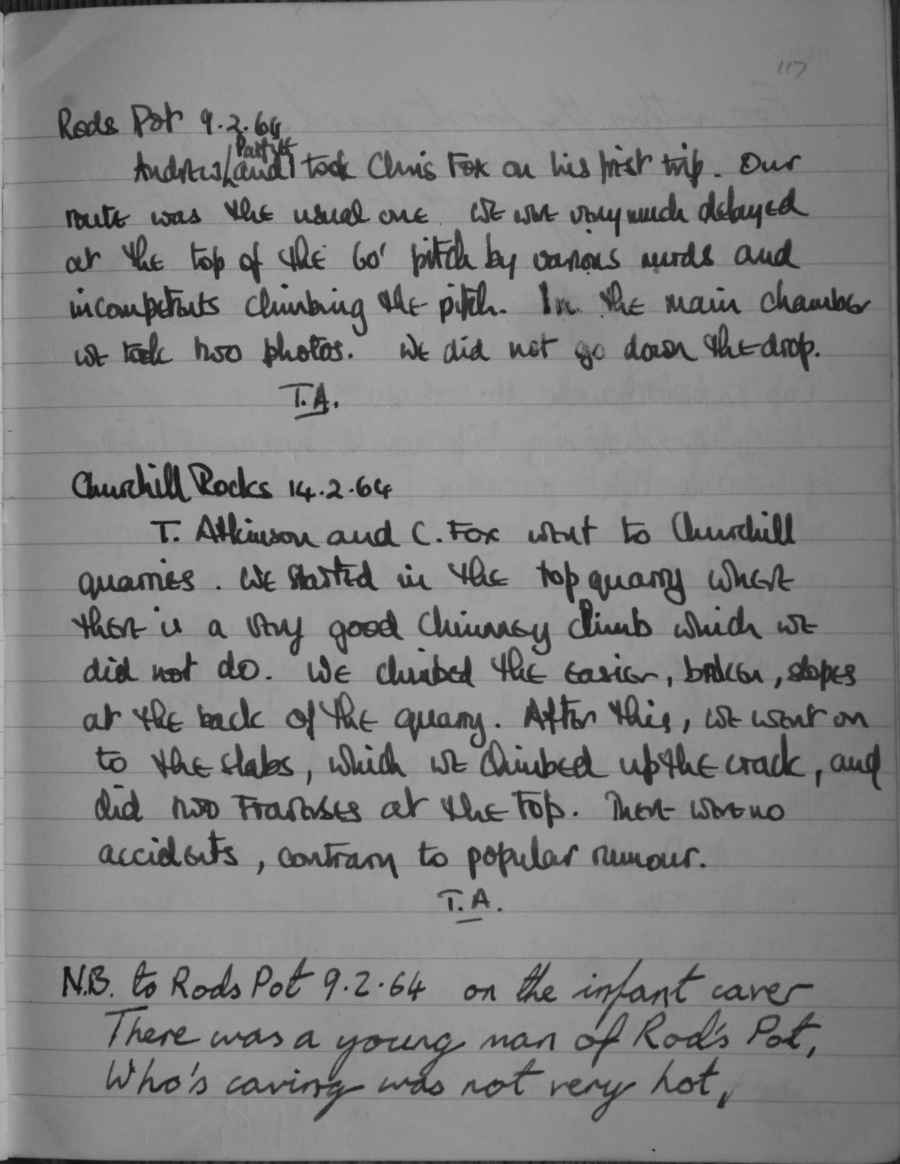 117
Rods Pot 9.2.64
Andrew and I took Chris Fox on his first trip. Our
route was the usual one. We were very much delayed
at the top of the 60' pitch by various nurds and
incompetents climbing the pitch. In the main chamber
we took two photos. We did not go down the drop.
T.A.
Churchill Rocks 14.2.64
T. Atkinson and C. Fox went to Churchill
quarries. We started in the top quarry where
there is a very good chimney climb which we
did not do. We climbed the easier, broken, slopes
at the back of the quarry. After this, we went on
to the slabs, which we climbed up the crack, and
did two traverses at the top. There were no
accidents, contrary to popular rumour.
T.A.
N.B. to Rods Pot 9.2.64 on the infant caver
There was a young man of Rod's Pot,
Who's caving was not very hot,